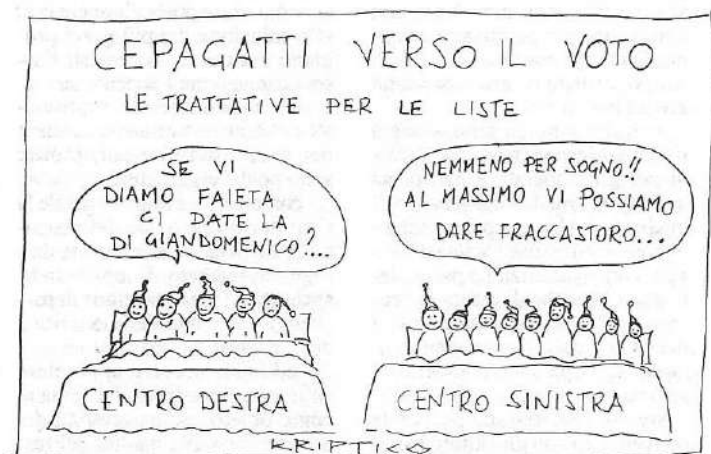 CEPAGATTI VERSO IL VOTO
LE TRATTATIVE PER LE LISTE
SE
DIAMO FAIETA
CI DATE LA
DI GIANDOMENICO?...
NEMMENO PER SOGNO!!
AL MASSIMO VI POSSIAMO
DARE FRACCASTORO...
CENTRO DESTRA
CENTRO SINISTRA
KRIPTICO